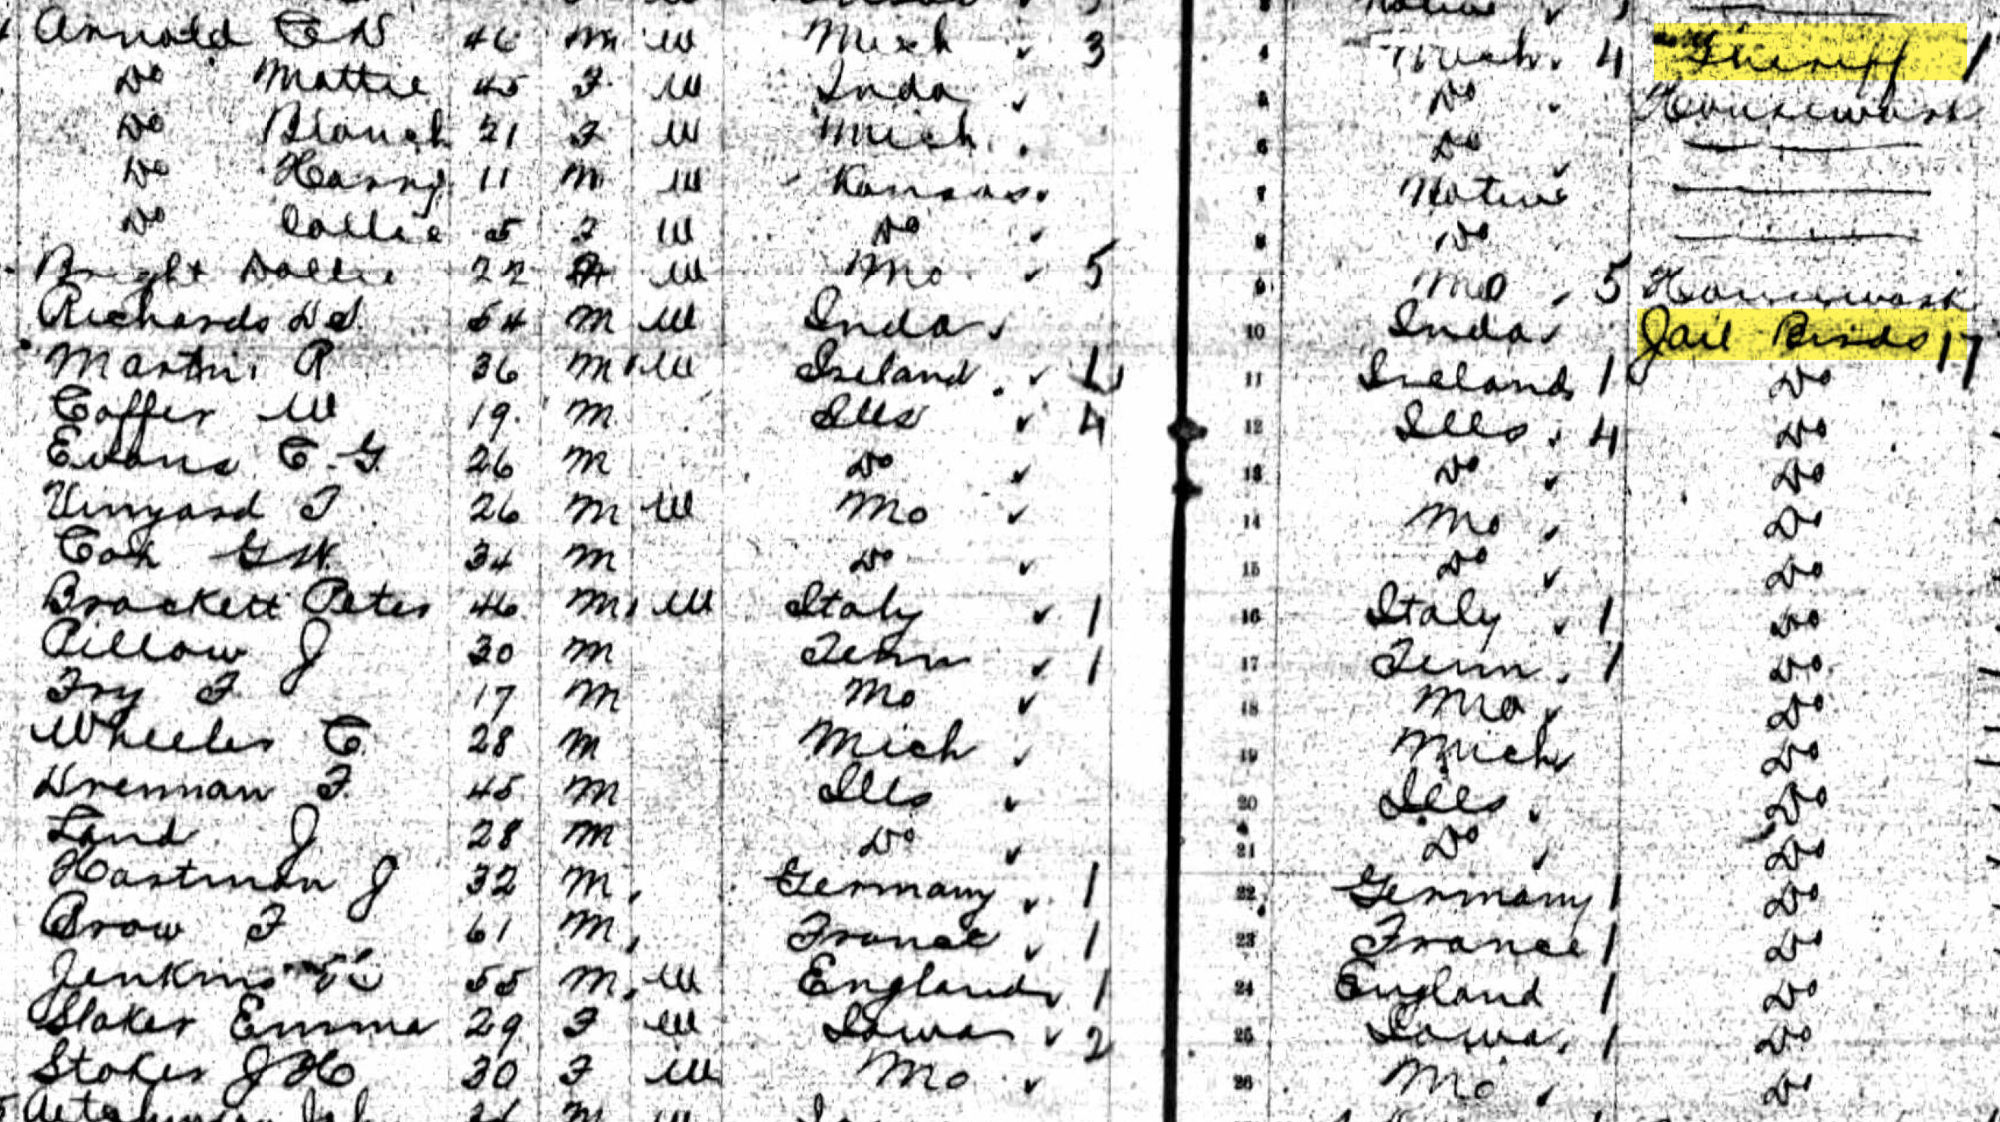 Arnold C N 46 m W Mich 3 4 Mich. 4 Sheriff 1
Do Mattie 45 F W Inda Do Housework
Do Blanch 21 F W Mich. 6 Do
Do Harry 11 m W Kansas. 7 Native
Do Callie 5 F W Do 8 Do
Bright Dollie 22 F W Mo 5 9 Mo 5 Housework
Richards D S. 54 m W Inda 10 Inda Jail Birds 17
Martin R 36 m W Ireland 1 11 Ireland 1 Do
Coffer W 19 m Ills 4 12 Ills 4 Do
Evans C. G. 26 m Do 13 Do Do
Vinyard T 26 m W Mo 14 Mo Do
Cox G W. 34 m Do 15 Do Do
Brackett Peter 46 m W Italy 1 16 Italy 1 Do
Pillow J 30 m Tenn 1 17 Tenn 1 Do
Fry F 17 m Mo 18 Mo Do
Wheeler C. 28 m Mich 19 Mich Do
Drennan F. 45 m Ills 20 Ills Do
Land J 28 m Do 21 Do Do
Hartman J 32 m Germany 1 22 Germany 1 Do
Brow F 61 m France 1 23 France 1 Do
Jenkins 55 m W England 1 24 England 1 Do
Slaker Emma 29 F W Iowa 2 25 Iowa 1 Do
Stokes J H 30 F W Mo 26 Mo Do